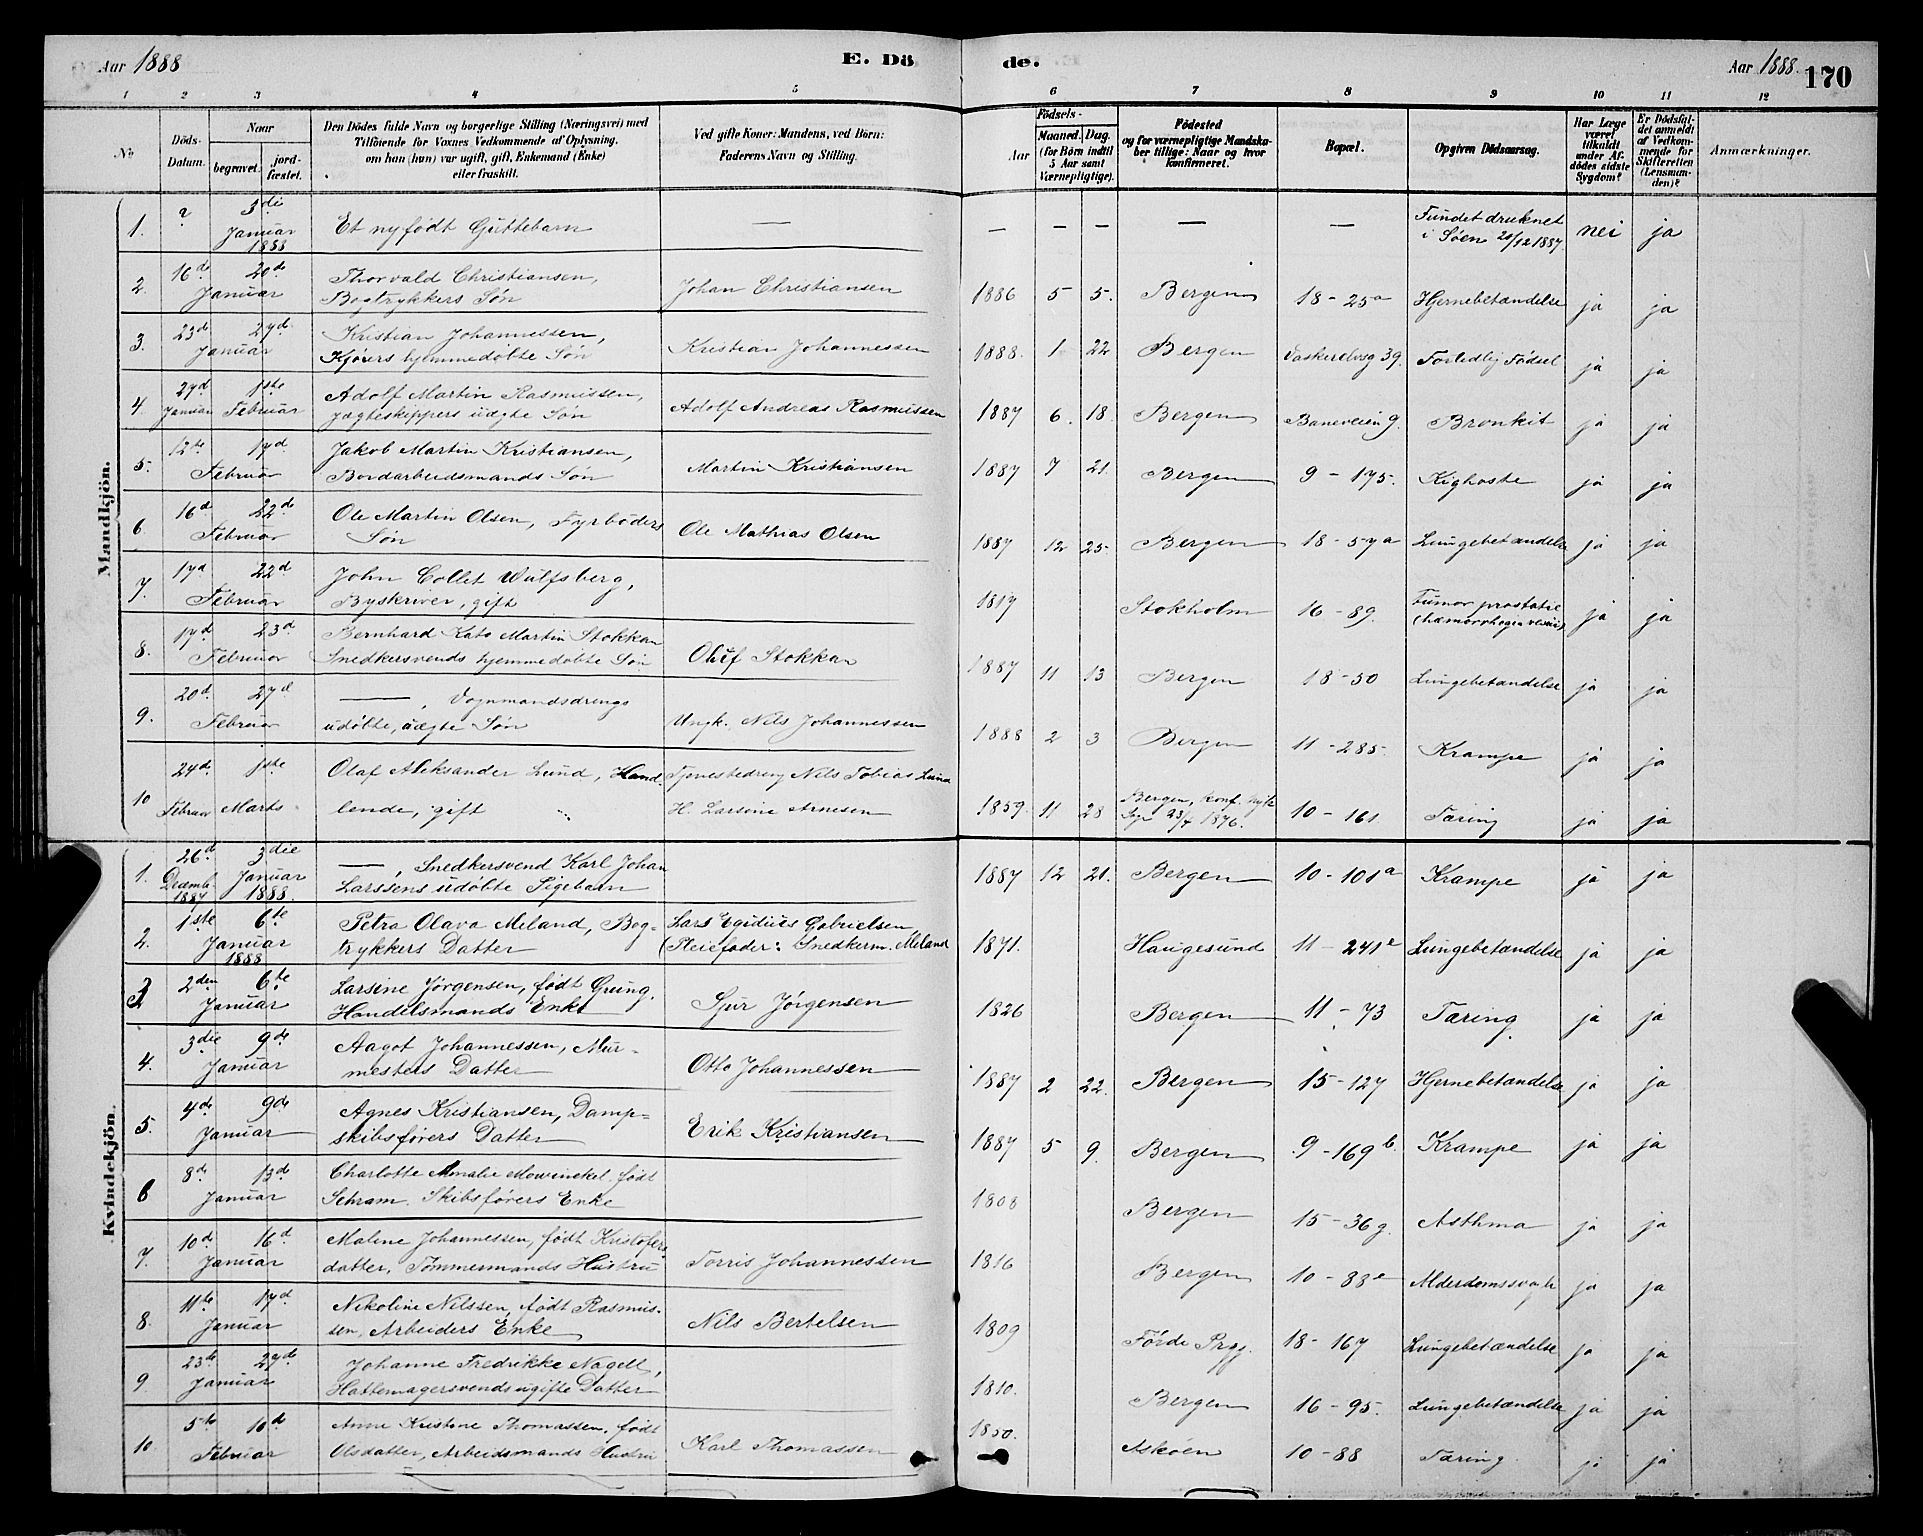 Aar 1888
E. Dö
de.
Aar 1888.
170
1 2 3 4 5 6 7 8 9 10 11 12
No
Döds-Datum.
Naar
begravet.
jordfæstet.
Den Dödes fulde Navn og borgerlige Stilling (Næringsvei) med
Tilföiende for Voxnes Vedkommende af Oplysning,
om han (hun) var ugift, gift, Enkemand (Enke)
eller fraskilt.
Ved gifte Koner: Mandens, ved Börn:
Faderens Navn og Stilling.
Födsels-
Aar
Maaned. Dag.
(for Börn indtil
5 Aar samt
Værnepligtige).
Födested
og for værnepligtige Mandska-
ber tillige: Naar og hvor
konfirmeret.
Bopæl.
Opgiven Dödsaarsag.
Har Læge
været
tilkaldt
under Af-
dödes sidste
Sygdom?
Er Dödsfal-
det anmeldt
af Vedkom-
mende for
Skifteretten
(Lensman-
den)?
Anmærkninger.
Mandkjön.
1. ? 3die Januar 1888 Et nyfødt Guttebarn — — — — — — Fundet druknet i Søen 20/12 1887 nei ja
2. 16de 20de Januar Thorvald Christiansen, Bogtrykkers Søn Johan Christiansen 1886 5 5. Bergen 18-25a Hjernebetændelse ja ja
3. 23de 27de Januar Kristian Johannessen, Kjørers hjemmedøbte Søn Kristian Johannessen 1888. 1 22 Bergen 39. Fortidlig Fødsel ja ja
4. 27d Januar 1ste Februar Adolf Martin Rasmussen, Jægteskippers uægte Søn Adolf Andreas Rasmussen 1887 6. 18. Bergen Baneveien 9. Bronkit ja ja
5. 12te 17d Februar Jakob Martin Kristiansen, Bordarbeidsmands Søn Martin Kristiansen 1887 7 21. Bergen 9-175. Kighoste ja ja
6 16d 22de Februar Ole Martin Olsen, Fyrbøders Søn Ole Mathias Olsen 1887 12 25. Bergen 18-57a Lungebetændelse ja ja
7. 17d 22d Februar John Collet Wulfsberg, Byskriver, gift 1817 Stokholm 16-89. Tumor prostatæ ja ja
8. 17d 23d Februar Bernhard Kato Martin Stokkan Snedkersvends hjemmedøbte Søn Oluf Stokkan 1887 11 13 Bergen 18-50 Lungebetændelse ja ja
9. 20d 27d Februar —, Vognmandsdrengs udøbte, uægte Søn Ungk. Nils Johannessen 1888 2 3 Bergen 11-285. Krampe ja ja
10 24de Februar 1ste Marts Olaf Aleksander Lund, Handlende, gift Tjenestedreng Nils Tobias Lund H. Larsine Arnesen 1859. 11 28 Bergen, konf. 23/4 1876. 10-161 Tæring ja ja
Kvindekjön.
1. 26d Decemb. 1887 3die Januar 1888. —, Snedkersvend Karl Johan Larssens udøbte Pigebarn 1887 12 21. Bergen 10-101a Krampe ja ja
2. 1ste 6te Januar 1888 Petra Olava Meland, Bogtrykkers Datter Lars Egidius Gabrielsen (Pleiefader: Snedkerm. Meland 1871. Haugesund 11-241e Lungebetændelse ja ja
3 2den 6te Januar Larsine Jørgensen, født Grung, Handelsmands Enke Sjur Jørgensen 1826 Bergen 11-73 Tæring ja ja
4. 3die 9de Januar Aagot Johannessen, Murmesters Datter Otto Johannessen 1887 2 22. Bergen 15-127 Hjernebetændelse ja ja
5. 4de 9de Januar Agnes Kristiansen, Dampskibsførers Datter Erik Kristiansen 1887 5 9. Bergen 9-169b. Krampe ja ja
6 8d 13d Januar Charlotte Amalie Mowinckel født Schram. Skibsførers Enke 1808 Bergen 15-36g. Asthma ja ja
7. 10d 16d Januar Malene Johannessen, født Kristofersdatter, Tømmermands Hustru Torris Johannessen 1816 Bergen 10-88e Alderdomssvagh. ja ja
8. 11te 17d Januar Nikoline Nilssen, født Rasmussen, Arbeiders Enke Nils Bertelsen 1809 Førde Prgj. 18-167 Lungebetændelse ja ja
9 23de 27de Januar Johanne Fredrikke Nagell, Hattemagersvends ugifte Datter 1810. Bergen 16-95. Lungebetændelse ja ja
10. 5te 10d Februar Anne Kristine Thomassen, født Olsdatter, Arbeidsmands Hustru Karl Thomassen 1850. Askøen 10-88 Tæring. ja ja